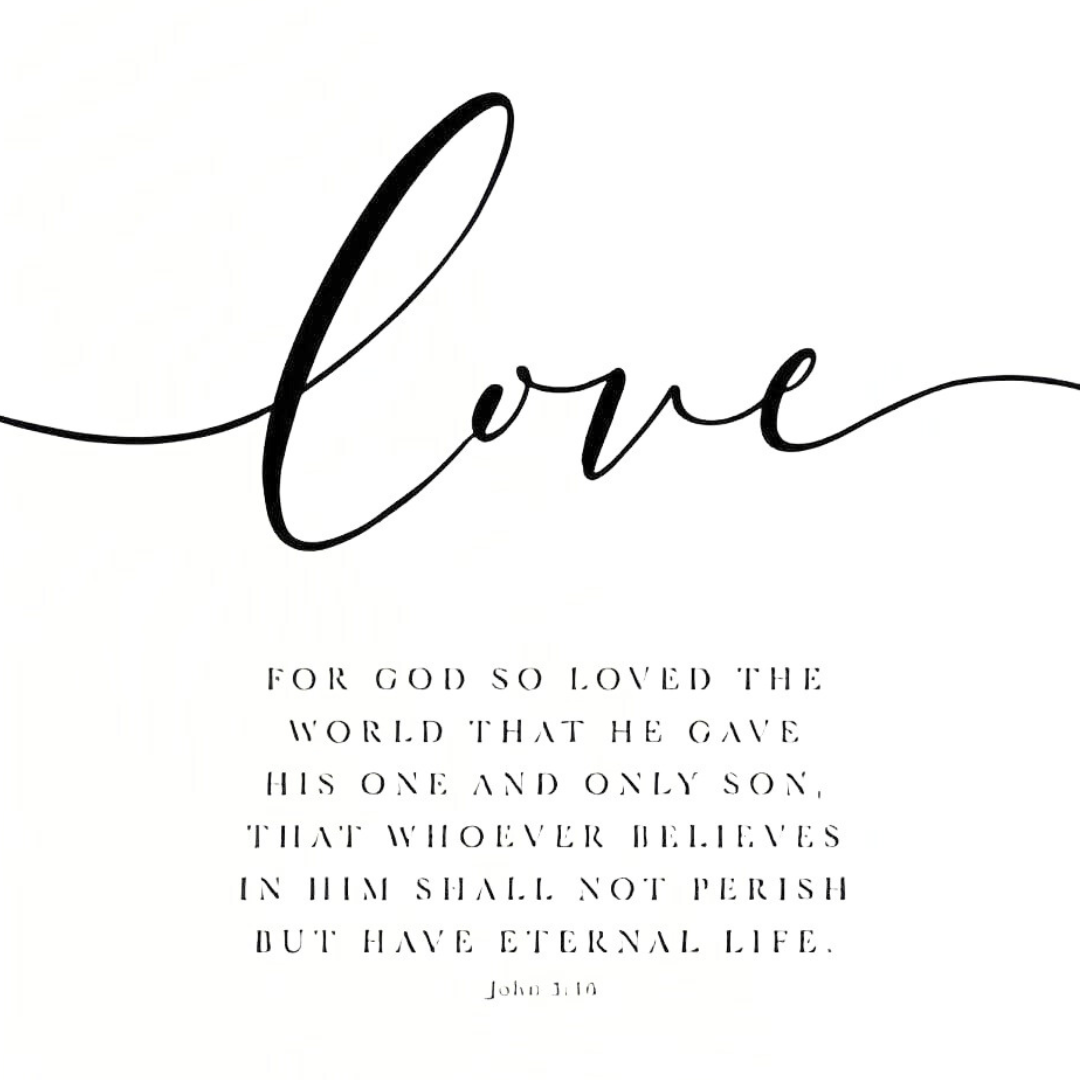 love
FOR GOD SO LOVED THE
WORLD THAT HE GAVE
HIS ONE AND ONLY SON,
THAT WHOEVER BELIEVES
IN HIM SHALL NOT PERISH
BUT HAVE ETERNAL LIFE.
John 3:16